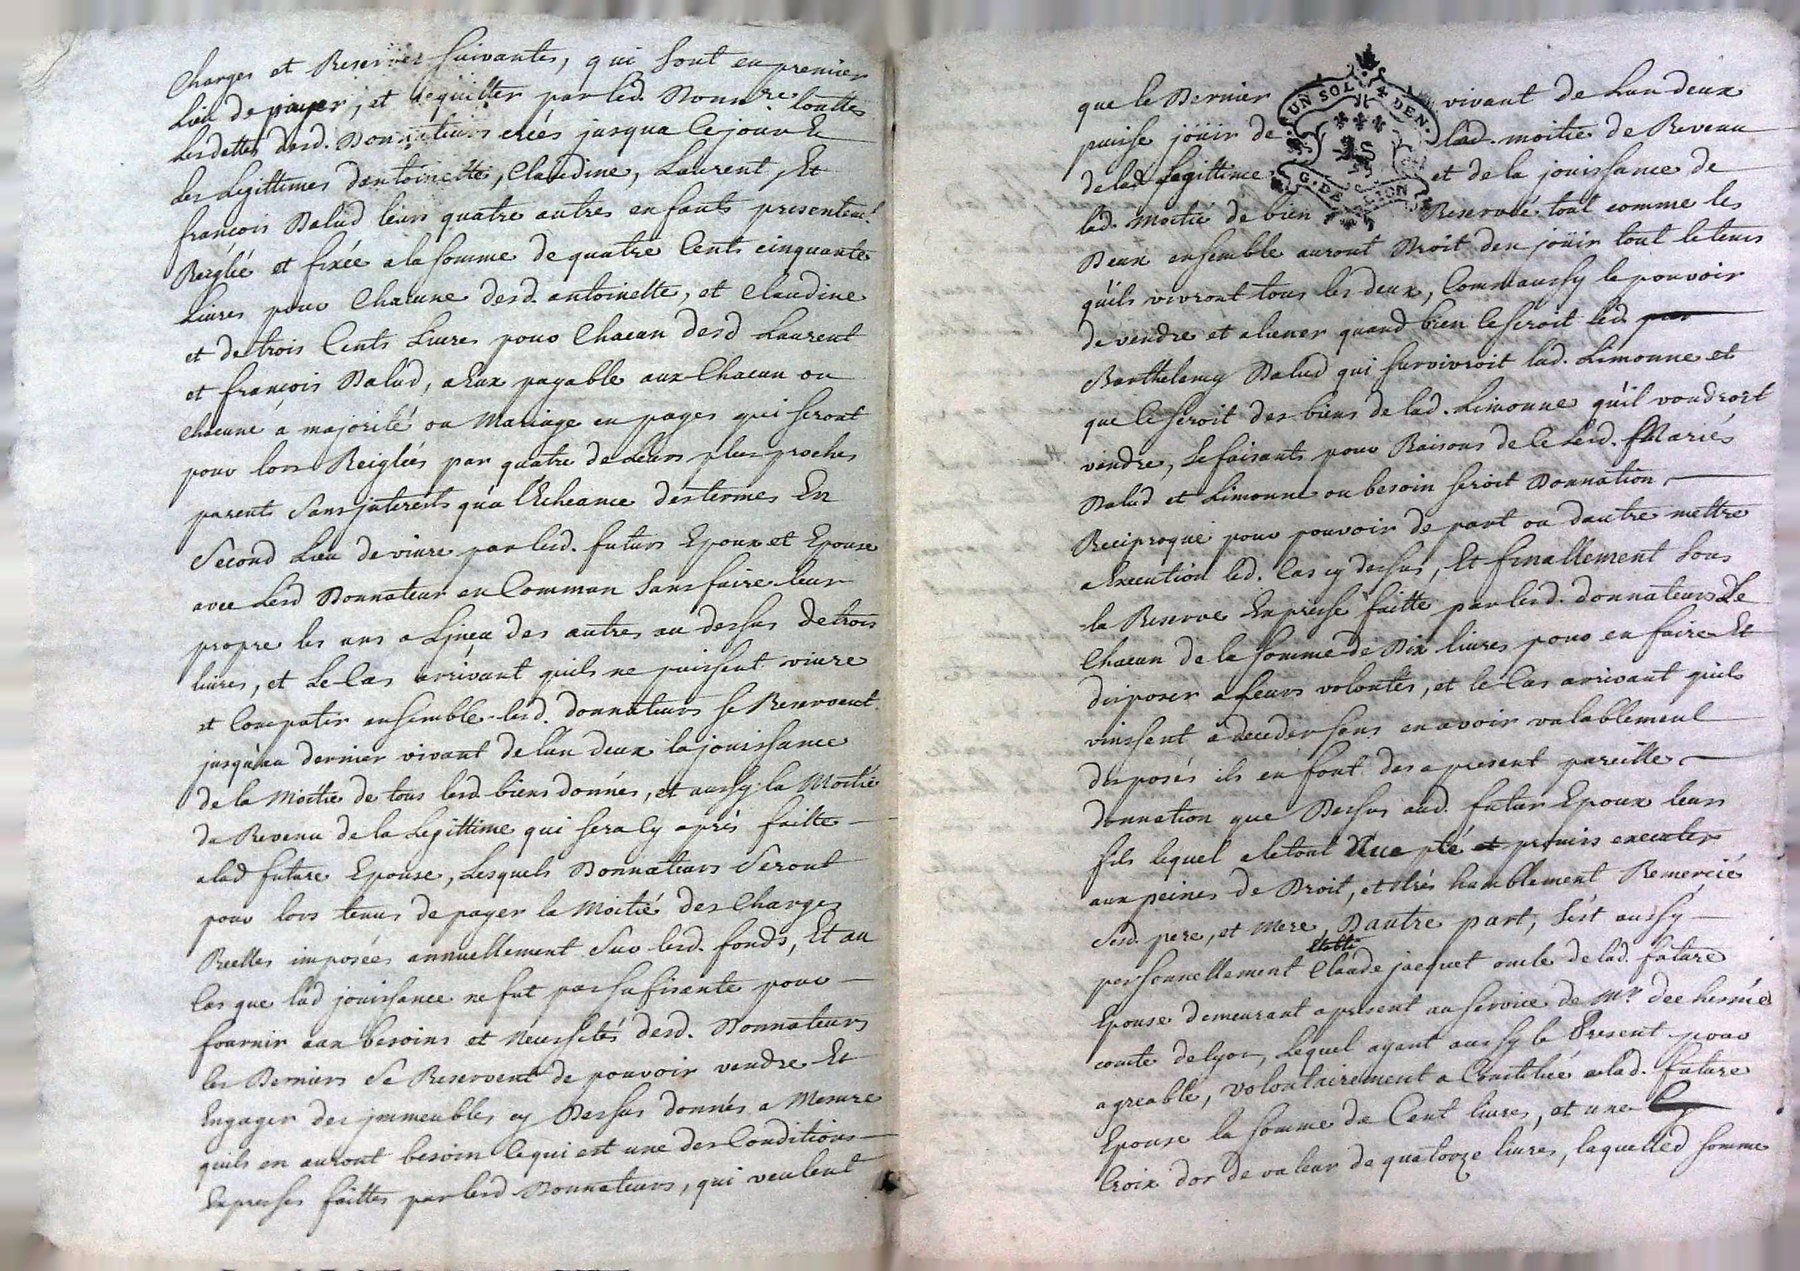 Charges et Reserves suivantes, qui sont en premier
Lieu de payer, et acquitter par led. Donnre. toutte
Les dettes desd. Donnateurs crées jusqua ce jour Et
les Legittimes dantoinette, Claudine, Laurent, Et
françois Dalud leurs quatre autres enfants presentemt.
Reiglée et fixée a la somme de quatre Cents cinquante
Livres pour Chacune desd. antoinette, et Claudine
et de trois Cents Livres pour Chacun desd Laurent
et françois Dalud, a Eux payable aux Chacun ou
chacune a majorité ou Mariage en payes qui seront
pour lors Reiglées par quatre de Leurs plus proches
parents Sans jnterests qua l'Echeance des termes En
Second Lieu de vivre par lesd. futurs Epoux et Epouse
avec Lesd Donnateur en Commun Sans faire leur
propre les uns a L'jnsu des autres au dessus de trois
livres, et Le Cas arrivant quils ne puissent vivre
et Compatir ensemble lesd. donnateurs se Reservent
jusqu'au dernier vivant de l'un deux la jouissance
de la Moitié de tous lesd. biens donnés, et aussy la Moitié
du Revenu de la Legittime qui sera Cy après faitte
a lad future Epouse, Lesquels Donnateurs Seront
pour lors tenus de payer la Moitié des Charges
Réelles imposées annuellement Sur lesd. fonds, Et au
Cas que lad jouissance ne fut pas sufisante pour
fournir aux besoins et Necessités desd. Donnateurs
les Derniers Se Reservent de pouvoir vendre Et
Engager des jmmeubles cy Dessus donnés a Mesure
quils en auront besoin Ce qui est une des Conditions
Expresses faittes par lesd Donnateurs, qui veulent
que le Dernier vivant de L'un deux
puisse joüir de lad. moitié de Revenu
de lad Legittime et de la jouissance de
lad. Moitié de bien Reservée tout comme les
Deux ensemble auront Droit den joüir tout le tems
qu'ils vivront tous les deux, Comm'aussy le pouvoir
de vendre et aliener quand bien Ce seroit led. par
Barthelemy Dalud qui survivroit lad. Limonne et
que Ce seroit des biens de lad. Limonne qu'il voudroit
vendre, Se faisants pour Raisons de Ce Lesd. Mariés
Dalud et Limonne ou besoin seroit Donnation
Reciproque pour pouvoir de part ou dautre mettre
a Execution led. Cas cy dessus, Et finallement Sous
la Reserve Expresse faitte par lesd. donnateurs De
Chacun de la Somme de Dix livres pour en faire Et
disposer a Leurs volontés, et le Cas arrivant quils
vinssent a deceder sans en avoir valablement
disposés ils en font des a present pareille
donnation que Dessus aud. futur Epoux leur
fils lequel a le tout et promis executer
aux peines de Droit, et très humblement Remercié
Sesd. pere, et Mere, D'autre part, S'est aussy
Etably
personnellement Claude jacquet oncle de lad. future
Epouse demeurant apresent au Service de Mr.
comte de lyon, Lequel ayant aussy le Present pour
agreable, volontairement a Constituée a lad. future
Epouse la Somme de Cent livres, et une
Croix dor de valeur de quatorze livres, laquelled somme
UN SOL 4 DEN.
G. DE LYON